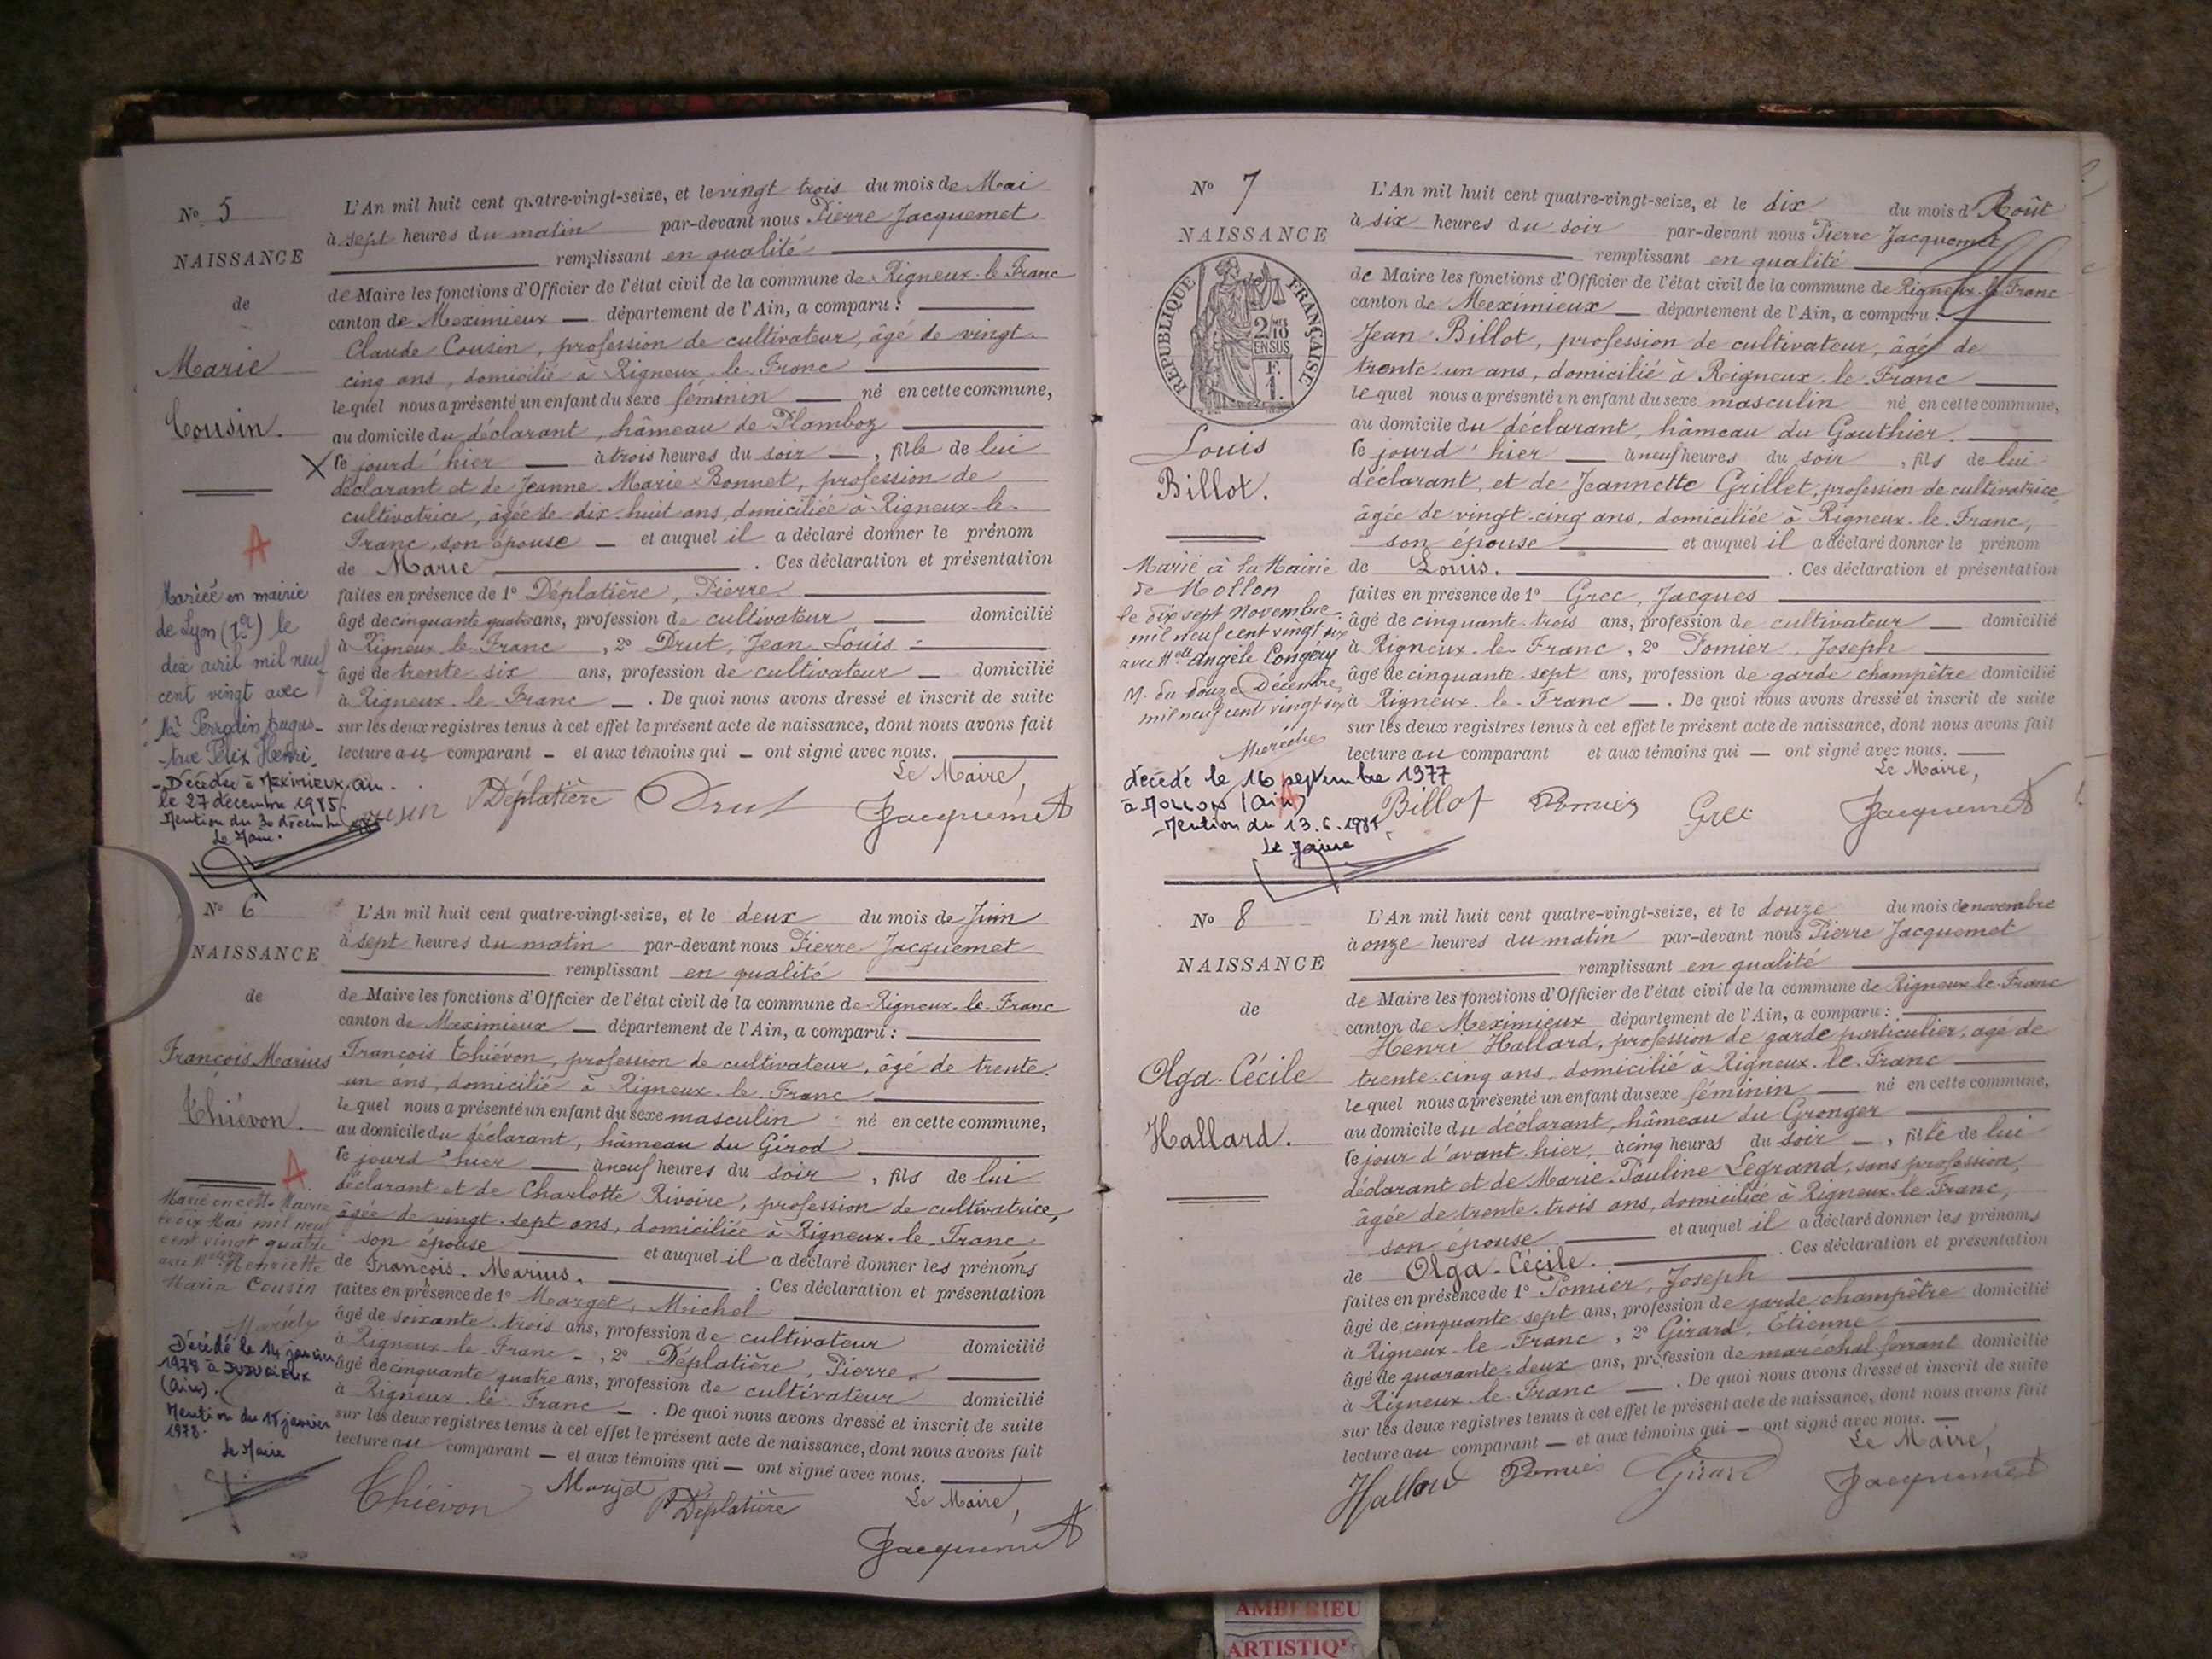 N° 5
NAISSANCE
de
Marie
Cousin.
A
Mariée en mairie
de Lyon (1er) le
dix avril mil neuf
cent vingt avec
Mr Perrodin Augus-
tave Félix Henri.
- Décédée à Meximieux, Ain.
le 27 décembre 1985.
Mention du 30 décembre
Le Maire.
L'An mil huit cent quatre-vingt-seize, et le vingt trois du mois de Mai
à sept heures du matin par-devant nous Pierre Jacquemet
remplissant en qualité
de Maire les fonctions d'Officier de l'état civil de la commune de Rigneux-le-Franc
canton de Meximieux — département de l'Ain, a comparu :
Claude Cousin, profession de cultivateur, âgé de vingt-
cinq ans, domicilié à Rigneux-le-Franc
lequel nous a présenté un enfant du sexe féminin — né en cette commune,
au domicile du déclarant, hâmeau de Plamboz
X le jourd'hier — à trois heures du soir —, fille de lui
déclarant et de Jeanne-Marie Bonnet, profession de
cultivatrice, âgée de dix-huit ans, domiciliée à Rigneux-le-
Franc, son épouse — et auquel il a déclaré donner le prénom
de Marie . Ces déclaration et présentation
faites en présence de 1° Déplatière, Pierre
âgé de cinquante quatre ans, profession de cultivateur — domicilié
à Rigneux-le-Franc, 2° Drut, Jean-Louis
âgé de trente six ans, profession de cultivateur — domicilié
à Rigneux-le-Franc — . De quoi nous avons dressé et inscrit de suite
sur les deux registres tenus à cet effet le présent acte de naissance, dont nous avons fait
lecture au comparant — et aux témoins qui — ont signé avec nous.
Le Maire,
Cousin P Déplatière Drut Jacquemet
N° 6
NAISSANCE
de
François Marius
Thiévon.
A.
Marié en cette Mairie
le dix Mai mil neuf
cent vingt quatre
avec Melle Henriette
Maria Cousin
Décédé le 14 janvier
1978 à Jujurieux
(Ain).
Mention du 15 janvier
1978.
Le Maire
L'An mil huit cent quatre-vingt-seize, et le deux du mois de Juin
à sept heures du matin par-devant nous Pierre Jacquemet
remplissant en qualité
de Maire les fonctions d'Officier de l'état civil de la commune de Rigneux-le-Franc
canton de Meximieux — département de l'Ain, a comparu :
François Thiévon, profession de cultivateur, âgé de trente-
un ans, domicilié à Rigneux-le-Franc
lequel nous a présenté un enfant du sexe masculin né en cette commune,
au domicile du déclarant, hâmeau du Girod
le jourd'hier — à neuf heures du soir, fils de lui
déclarant et de Charlotte Rivoire, profession de cultivatrice,
âgée de vingt-sept ans, domiciliée à Rigneux-le-Franc,
son épouse et auquel il a déclaré donner les prénoms
de François-Marius. . Ces déclaration et présentation
faites en présence de 1° Margot, Michel
âgé de soixante-trois ans, profession de cultivateur domicilié
à Rigneux-le-Franc —, 2° Déplatière, Pierre.
âgé de cinquante quatre ans, profession de cultivateur domicilié
à Rigneux-le-Franc — . De quoi nous avons dressé et inscrit de suite
sur les deux registres tenus à cet effet le présent acte de naissance, dont nous avons fait
lecture au comparant — et aux témoins qui — ont signé avec nous.
Le Maire,
Thiévon Margot P Déplatière
Jacquemet
N° 7
NAISSANCE
de
RÉPUBLIQUE FRANÇAISE
2/10 EN SUS
F. 1.
Louis
Billot.
Marié à la Mairie
de Mollon
le dix sept Novembre
mil neuf cent vingt six
avec Melle Angèle Congéry
M. du Douze Décembre
mil neuf cent vingt-six
décédé le 16 septembre 1977
à Mollon (Ain)
Mention du 13.6.1981
Le Maire
L'An mil huit cent quatre-vingt-seize, et le dix du mois d'Août
à six heures du soir par-devant nous Pierre Jacquemet
remplissant en qualité
de Maire les fonctions d'Officier de l'état civil de la commune de Rigneux-le-Franc
canton de Meximieux — département de l'Ain, a comparu :
Jean Billot, profession de cultivateur, âgé de
trente-un ans, domicilié à Rigneux-le-Franc
lequel nous a présenté un enfant du sexe masculin né en cette commune,
au domicile du déclarant, hâmeau du Gauthier.
le jourd'hier — à neuf heures du soir, fils de lui
déclarant, et de Jeannette Grillet, profession de cultivatrice,
âgée de vingt-cinq ans, domiciliée à Rigneux-le-Franc,
son épouse et auquel il a déclaré donner le prénom
de Louis. . Ces déclaration et présentation
faites en présence de 1° Grec, Jacques
âgé de cinquante-trois ans, profession de cultivateur — domicilié
à Rigneux-le-Franc, 2° Pomier, Joseph
âgé de cinquante-sept ans, profession de garde champêtre domicilié
à Rigneux-le-Franc — . De quoi nous avons dressé et inscrit de suite
sur les deux registres tenus à cet effet le présent acte de naissance, dont nous avons fait
lecture au comparant et aux témoins qui — ont signé avec nous.
Le Maire,
Billot Pomier Grec Jacquemet
N° 8
NAISSANCE
de
Olga-Cécile
Hallard.
L'An mil huit cent quatre-vingt-seize, et le douze du mois de novembre
à onze heures du matin par-devant nous Pierre Jacquemet
remplissant en qualité
de Maire les fonctions d'Officier de l'état civil de la commune de Rigneux-le-Franc
canton de Meximieux département de l'Ain, a comparu :
Henri Hallard, profession de garde particulier, âgé de
trente-cinq ans, domicilié à Rigneux-le-Franc
lequel nous a présenté un enfant du sexe féminin — né en cette commune,
au domicile du déclarant, hâmeau du Gronger
le jour d'avant-hier, à cinq heures du soir —, fille de lui
déclarant et de Marie-Pauline Legrand, sans profession,
âgée de trente-trois ans, domiciliée à Rigneux-le-Franc,
son épouse et auquel il a déclaré donner les prénoms
de Olga-Cécile. . Ces déclaration et présentation
faites en présence de 1° Pomier, Joseph
âgé de cinquante sept ans, profession de garde champêtre domicilié
à Rigneux-le-Franc, 2° Girard, Etienne
âgé de quarante-deux ans, profession de maréchal ferrant domicilié
à Rigneux-le-Franc — . De quoi nous avons dressé et inscrit de suite
sur les deux registres tenus à cet effet le présent acte de naissance, dont nous avons fait
lecture au comparant — et aux témoins qui — ont signé avec nous. —
Le Maire,
Hallard Pomier Girard Jacquemet
AMBERIEU
ARTISTIQU